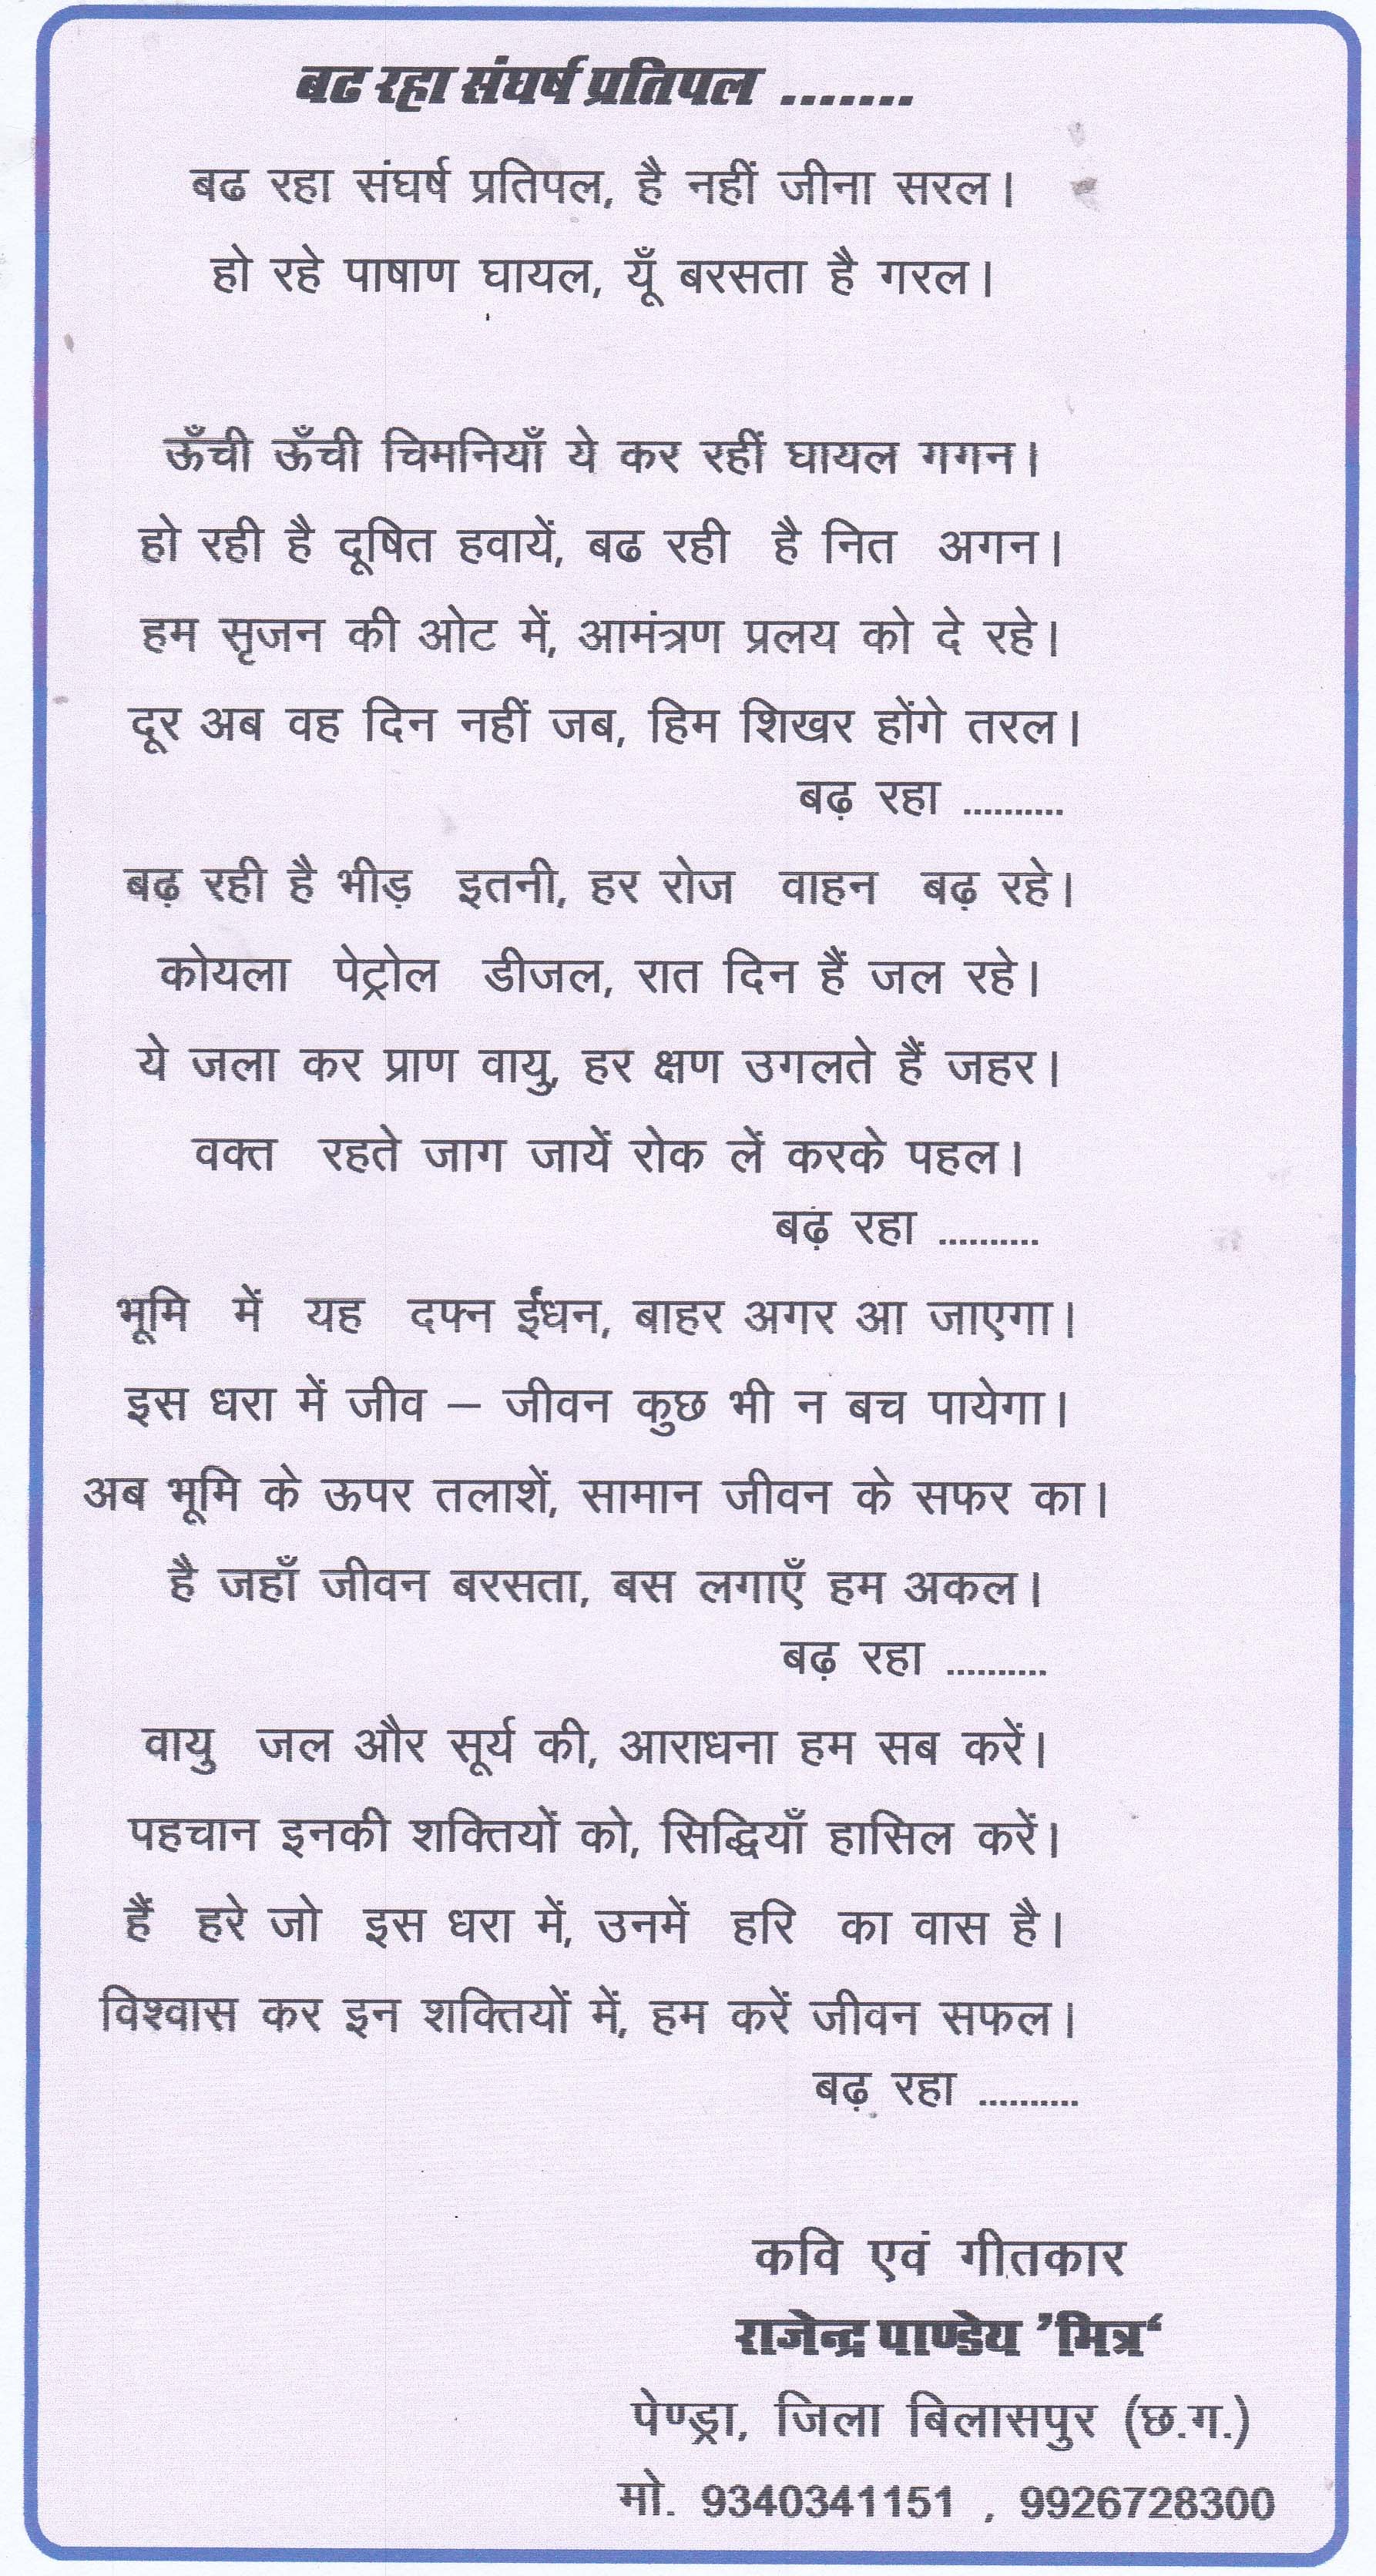 बढ रहा संघर्ष प्रतिपल .......
बढ रहा संघर्ष प्रतिपल, है नहीं जीना सरल।
हो रहे पाषाण घायल, यूँ बरसता है गरल।
ऊँची ऊँची चिमनियाँ ये कर रहीं घायल गगन।
हो रही है दूषित हवायें, बढ रही है नित अगन।
हम सृजन की ओट में, आमंत्रण प्रलय को दे रहे।
दूर अब वह दिन नहीं जब, हिम शिखर होंगे तरल।
बढ़ रहा ..........
बढ़ रही है भीड़ इतनी, हर रोज वाहन बढ़ रहे।
कोयला पेट्रोल डीजल, रात दिन हैं जल रहे।
ये जला कर प्राण वायु, हर क्षण उगलते हैं जहर।
वक्त रहते जाग जायें रोक लें करके पहल।
बढ़ रहा ..........
भूमि में यह दफ्न ईंधन, बाहर अगर आ जाएगा।
इस धरा में जीव – जीवन कुछ भी न बच पायेगा।
अब भूमि के ऊपर तलाशें, सामान जीवन के सफर का।
है जहाँ जीवन बरसता, बस लगाएँ हम अकल।
बढ़ रहा ..........
वायु जल और सूर्य की, आराधना हम सब करें।
पहचान इनकी शक्तियों को, सिद्धियाँ हासिल करें।
हैं हरे जो इस धरा में, उनमें हरि का वास है।
विश्वास कर इन शक्तियों में, हम करें जीवन सफल।
बढ़ रहा ..........
कवि एवं गीतकार
राजेन्द्र पाण्डेय ’मित्र‘
पेण्ड्रा, जिला बिलासपुर (छ.ग.)
मो. 9340341151 , 9926728300